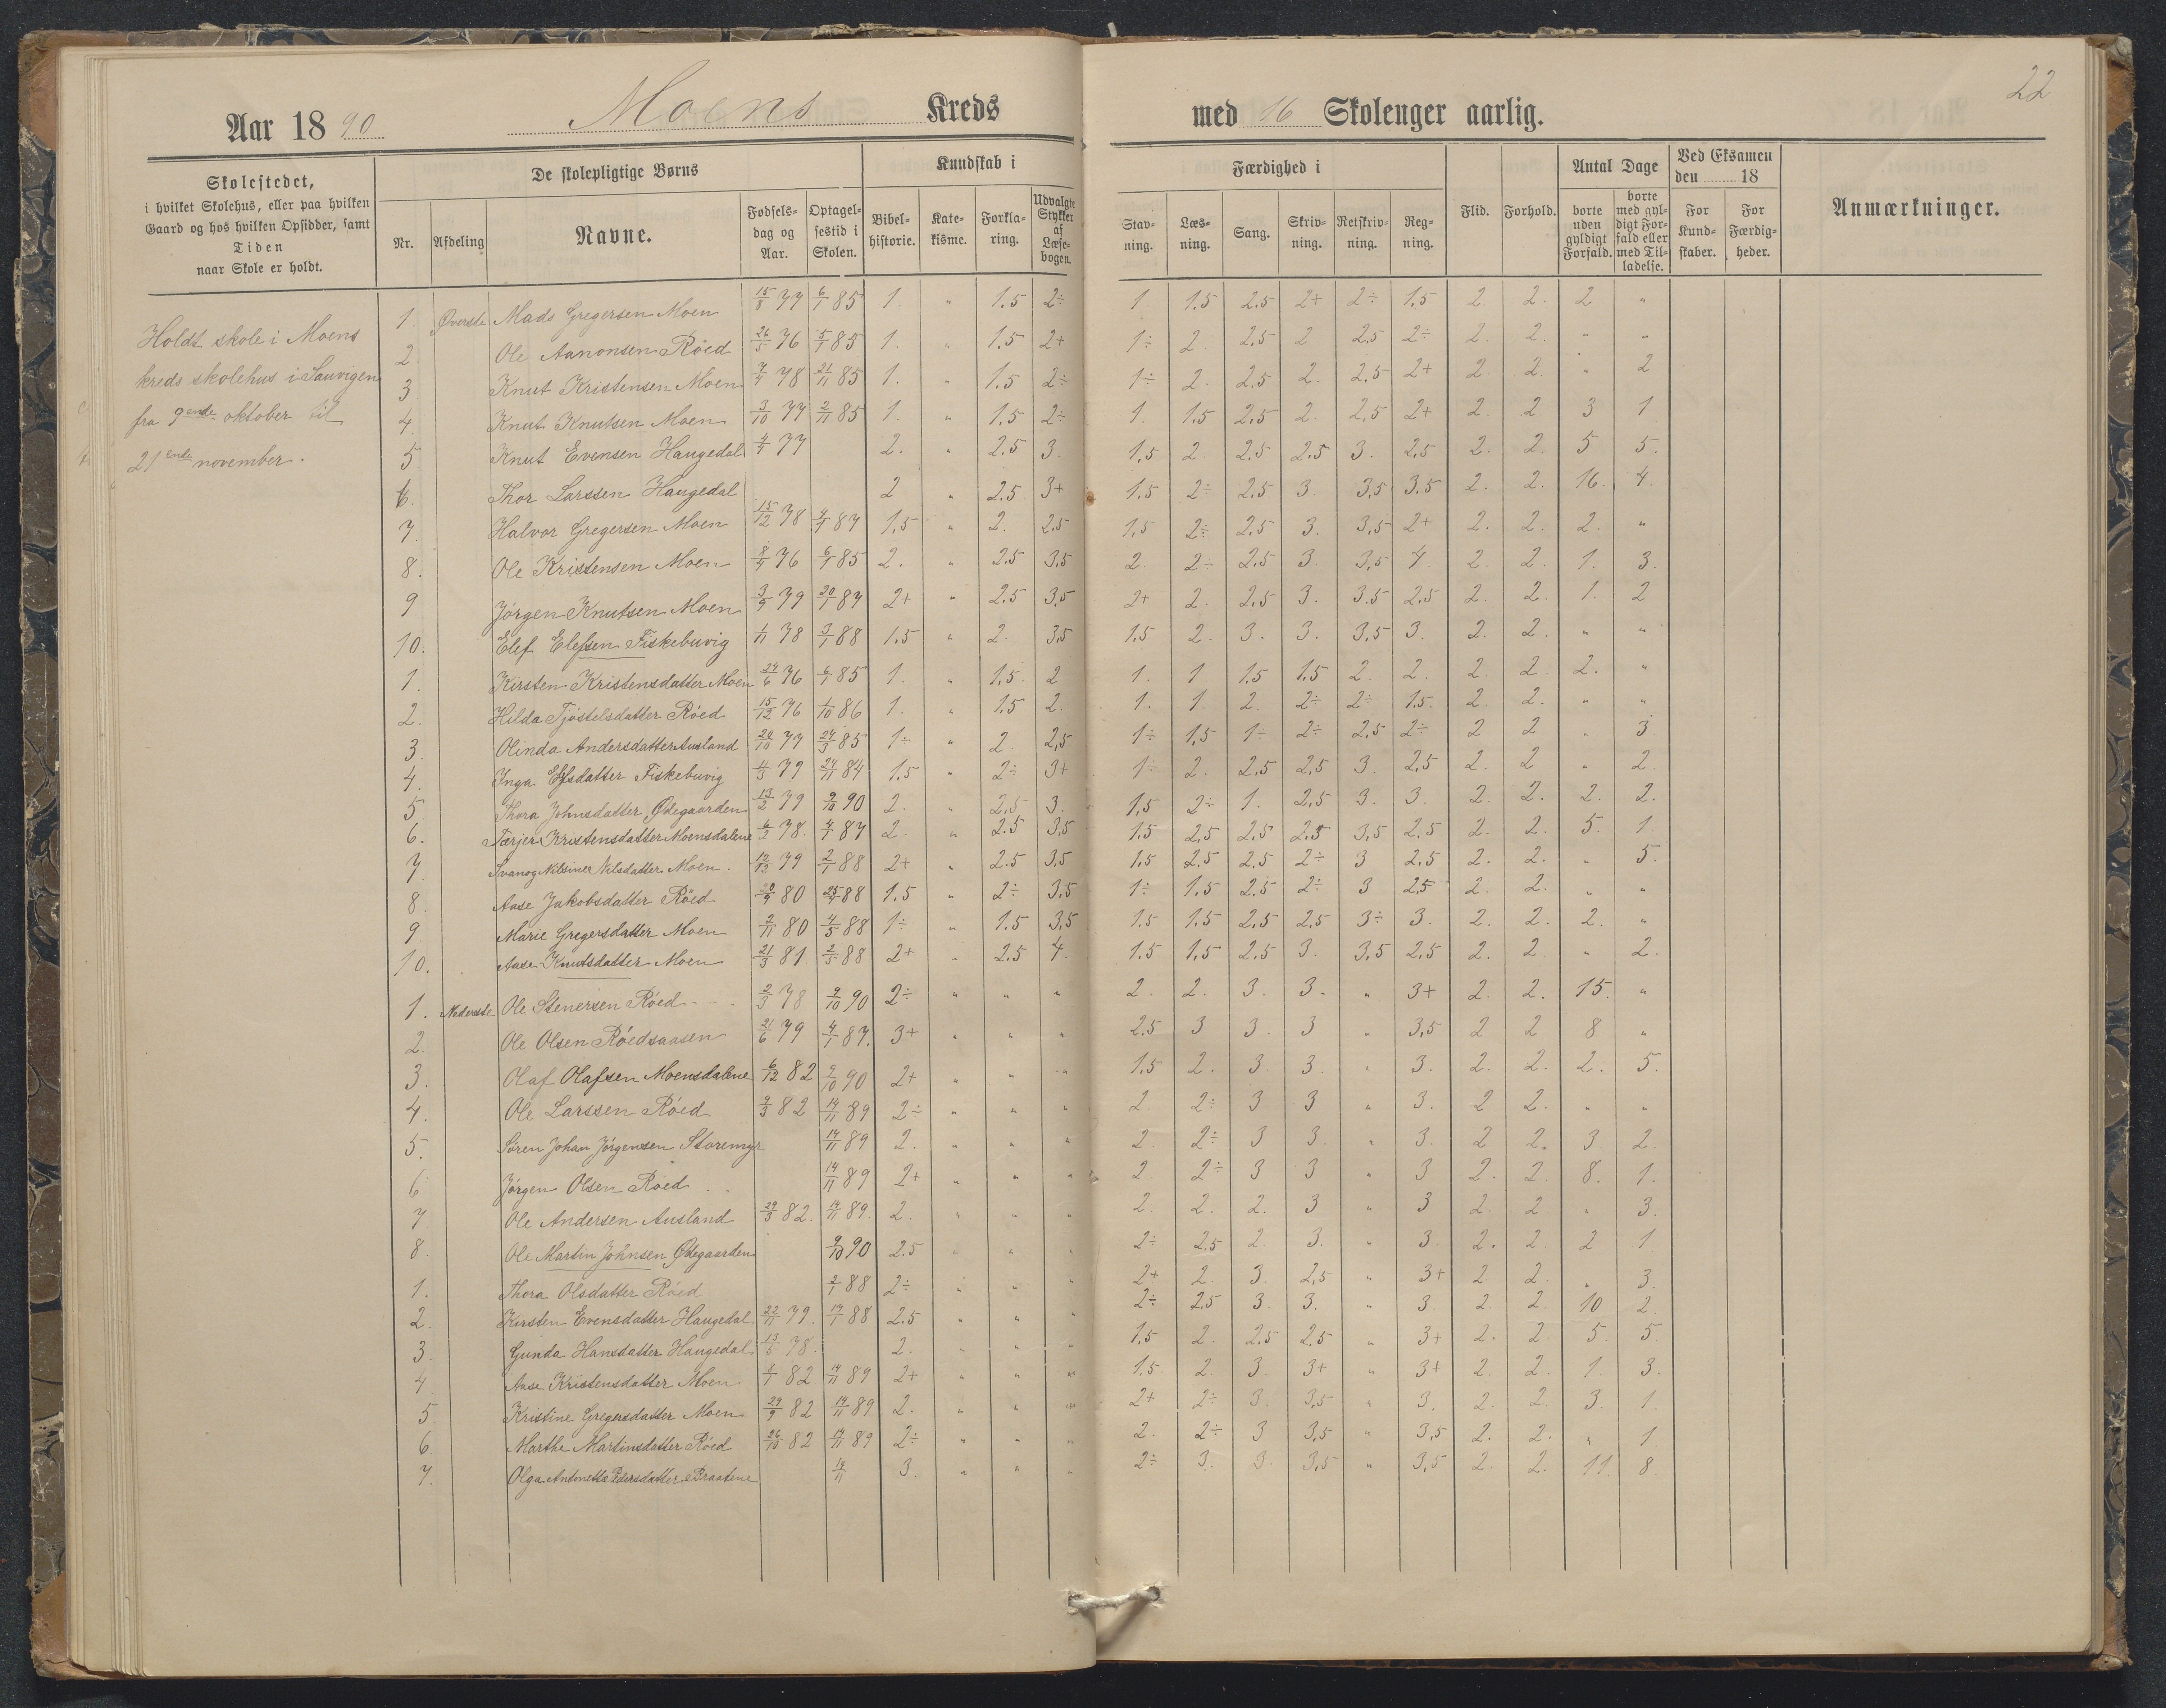 22
Aar 1890 Moens Kreds med 16 Skolenger aarlig.
Skolestedet,
i hvilket Skolehus, eller paa hvilken
Gaard og hos hvilken Opsidder, samt
Tiden
naar Skole er holdt.
De skolepligtige Børns
Nr. Afdeling Navne. Fødselsdag og Aar. Optagelsestid i Skolen.
Kundskab i
Bibelhistorie. Katekisme. Forklaring. Udvalgte Stykker af Læsebogen.
Færdighed i
Stavning. Læsning. Sang. Skrivning. Retskrivning. Regning.
Flid. Forhold.
Antal Dage
borte uden gyldigt Forfald. borte med gyldigt Forfald eller med Tilladelse.
Ved Eksamen den 18
For Kundskaber. For Færdigheder.
Anmærkninger.
Holdt skole i Moens
kreds skolehus i Sauvigen
fra 9ende oktober til
21ende november.
1. Øverste Mads Gregersen Moen 15/8 77 6/1 85 1. " 1.5 2÷ 1. 1.5 2.5 2+ 2÷ 1.5 2. 2. 2 "
2. Ole Aanonsen Röed 26/5 76 5/1 85 1. " 1.5 2+ 1÷ 2 2.5 2 2.5 2÷ 2. 2. " "
3 Knut Kristensen Moen 7/4 78 21/11 85 1. " 1.5 2÷ 1÷ 2. 2.5 2. 2.5 2+ 2. 2. " 2
4 Knut Knutsen Moen 3/10 77 2/11 85 1. " 1.5 2÷ 1. 1.5 2.5 2. 2.5 2+ 2. 2 3 1
5 Knut Evensen Haugedal 4/4 77 2. " 2.5 3. 1.5 2 2.5 2.5 3. 2.5 2. 2. 5 5.
6. Thor Larssen Haugedal 2 " 2.5 3+ 1.5 2÷ 2.5 3. 3.5 3.5 2. 2. 16. 4.
7. Halvor Gregersen Moen 15/12 78 4/1 87 1.5 " 2. 2.5 1.5 2÷ 2.5 3. 3.5 2+ 2. 2. 2. "
8. Ole Kristensen Moen 8/4 76 6/1 85 2. " 2.5 3.5 2 2÷ 2.5 3 3.5 4 2. 2. 1. 3.
9. Jörgen Knutsen Moen 3/9 79 20/1 87 2+ " 2.5 3.5 2+ 2. 2.5 3. 3.5 2.5 2. 2. 1. 2
10. Elef Elefsen Fiskebuvig 1/11 78 3/1 88 1.5 " 2. 3.5 1.5 2. 3. 3. 3.5 3. 2. 2. " "
1. Kirsten Kristensdatter Moen 24/6 76 6/1 85 1. " 1.5. 2 1. 1 1.5 1.5 2 2. 2. 2 2. "
2. Hilda Tjöstelsdatter Röed 15/12 76 1/10 86 1. " 1.5 2. 1. 1. 2. 2÷ 2÷ 1.5. 2. 2. " "
3. Olinda Andersdatter Ausland 20/10 77 24/3 85 1÷ " 2. 2.5 1÷ 1.5 1÷ 2÷ 2.5 2÷ 2 2 " 3.
4. Inga Elefsdatter Fiskebuvig 4/3 79 24/11 84 1.5 " 2÷ 3+ 1÷ 2. 2.5 2.5 3. 2.5 2. 2 " 2.
5. Thora Johnsdatter Ødegaarden 13/2 79 9/10 90 2. " 2.5 3. 1.5 2÷ 1. 2.5 3. 3. 2. 2. 2. 2.
6. Tærjer Kristensdatter Moensdalene 6/3 78. 4/1 87 2. " 2.5 3.5 1.5 2.5 2.5 2.5 3.5 2.5 2. 2. 5. 1.
7. Svanog Nilsine Nilsdatter Moen. 12/12 79 2/1 88 2+ " 2.5 3.5 1.5 2.5 2.5 2÷ 3 2.5 2. 2. " 5.
8. Aase Jakobsdatter Röed 80 88 1.5 " 2÷ 3.5 1÷ 1.5 2.5 2÷ 3 2.5 2. 2. " "
9. Marie Gregersdatter Moen 2/11 80 4/5 88 1÷ " 1.5 3.5 1.5 1.5 2.5 2.5 3÷ 3. 2. 2. 2. "
10. Aase Knutsdatter Moen 21/3 81 2/5 88 2+ " 2.5 4. 1.5 1.5 2.5 3. 3.5 2.5 2. 2. " 2.
1. Nederste Ole Stenersen Röed 2/3 78 9/10 90 2÷ " " " 2. 2. 3. 3. " 3+ 2. 2. 15. "
2. Ole Olsen Röedsaasen 21/6 79 4/1 87. 3+ " " " 2.5 3 3. 3 " 3.5 2 2 8 "
3. Olaf Olafsen Moensdalene 6/12 82 9/10 90 2+ " " " 1.5 2. 3. 3. " 3. 2. 2. 2. 5.
4. Ole Larssen Röed 9/3 82 14/11 89 2÷ " " " 2. 2÷ 3 3 " 3. 2 2. " "
5. Sören Johan Jörgensen Storemyr 14/11 89 2. " " " 2. 2÷ 3 3. " 3. 2 2. 3. 2.
6 Jörgen Olsen Röed 14/11 89 2+ " " " 2. 2÷ 3 3 " 3 2. 2. 8. 1.
7 Ole Andersen Ausland 29/3 82. 14/11 89. 2. " " " 2. 2. 2. 3 " 3 2. 2. " 3.
8. Ole Martin Johnsen Ødegaarden 9/10 90 2.5 " " " 2÷ 2.5 2 3. " 3. 2. 2. 2 1
1. Thora Olsdatter Röed 2/1 88 2÷ " " " 2+ 2 3. 2.5 " 3+ 2 2. " 3.
2. Kirsten Evensdatter Haugedal 22/11 79. 14/1 88 2.5 " " " 2÷ 2.5 3. 3. " 3. 2. 2. 10 2.
3. Gunda Hansdatter Haugedal 13/5 78. 2. " " " 1.5 2 2.5 2.5 " 3+ 2. 2. 5. 5.
4 Aase Kristensdatter Moen 1/1 82 14/11 89 2+ " " " 1.5. 2. 3. 3+ " 3+ 2. 2. 1. 3.
5. Kristine Gregersdatter Moen 29/9 82 14/11 89 2. " " " 2+ 2÷ 3. 3.5 " 3. 2. 2. 3. 1.
6. Marthe Martinsdatter Röed 26/10 82 14/11 89 2÷ " " " 2. 2÷ 3 3.5 " 3.5 2. 2. " 1
7. Olga Antonetta Pedersdatter Braatene 14/11 3. " " " 2÷ 3. 3. 3.5 " 3.5 2. 2. 11. 8.